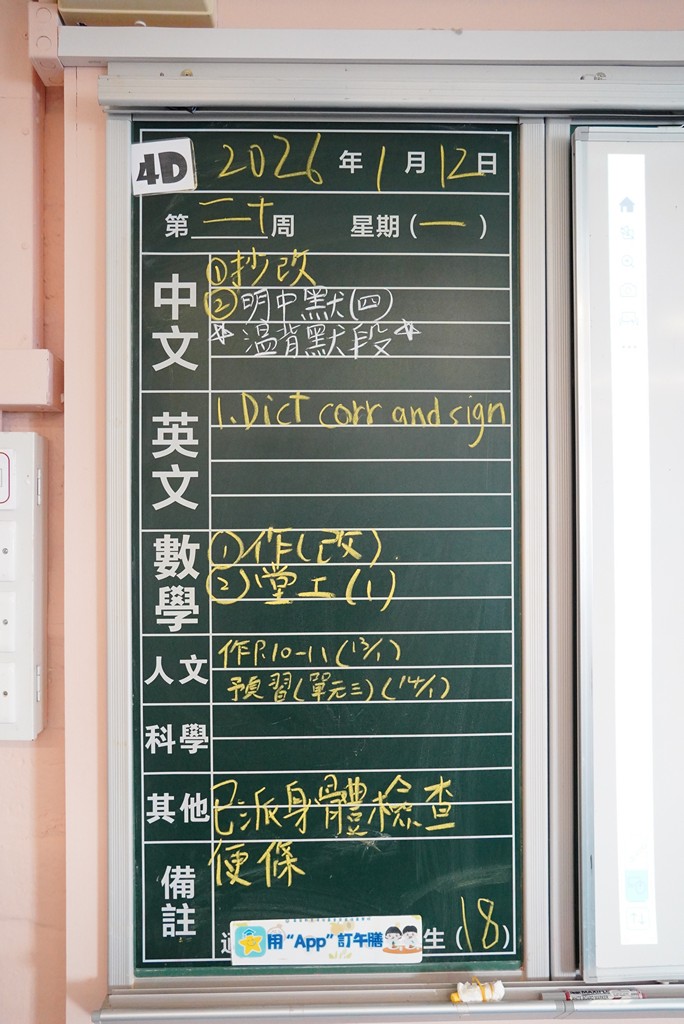 4D 2026年1月12日
第二十周 星期(一)
中文
①抄改
②明中默(四)
*溫背默段*
英文
1. Dict corr and sign
數學
①作(改)
②堂工(1)
人文
作P.10-11(13/1)
預習(單元三)(14/1)
科學
其他
已派身體檢查
便條
備註
用“App”訂午膳
生(18)